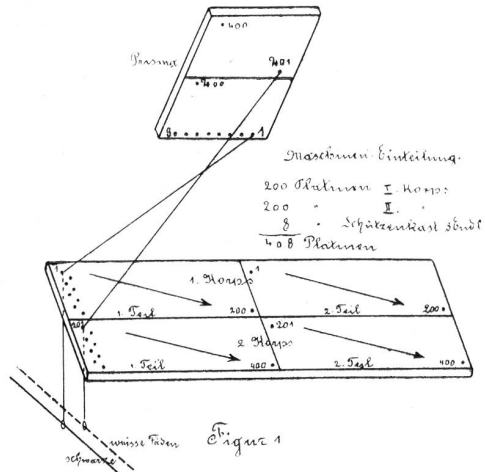 400
Prisma
201
200
8 1
Maschinen-Einteilung.
200 Platinen I. Korps
200 " II. "
8 "
408 Platinen
1 1. Korps 1
1. Teil 200 2. Teil 200
201 201
2. Korps
1. Teil 400 2. Teil 400
weisse Fäden
schwarze
Figur 1